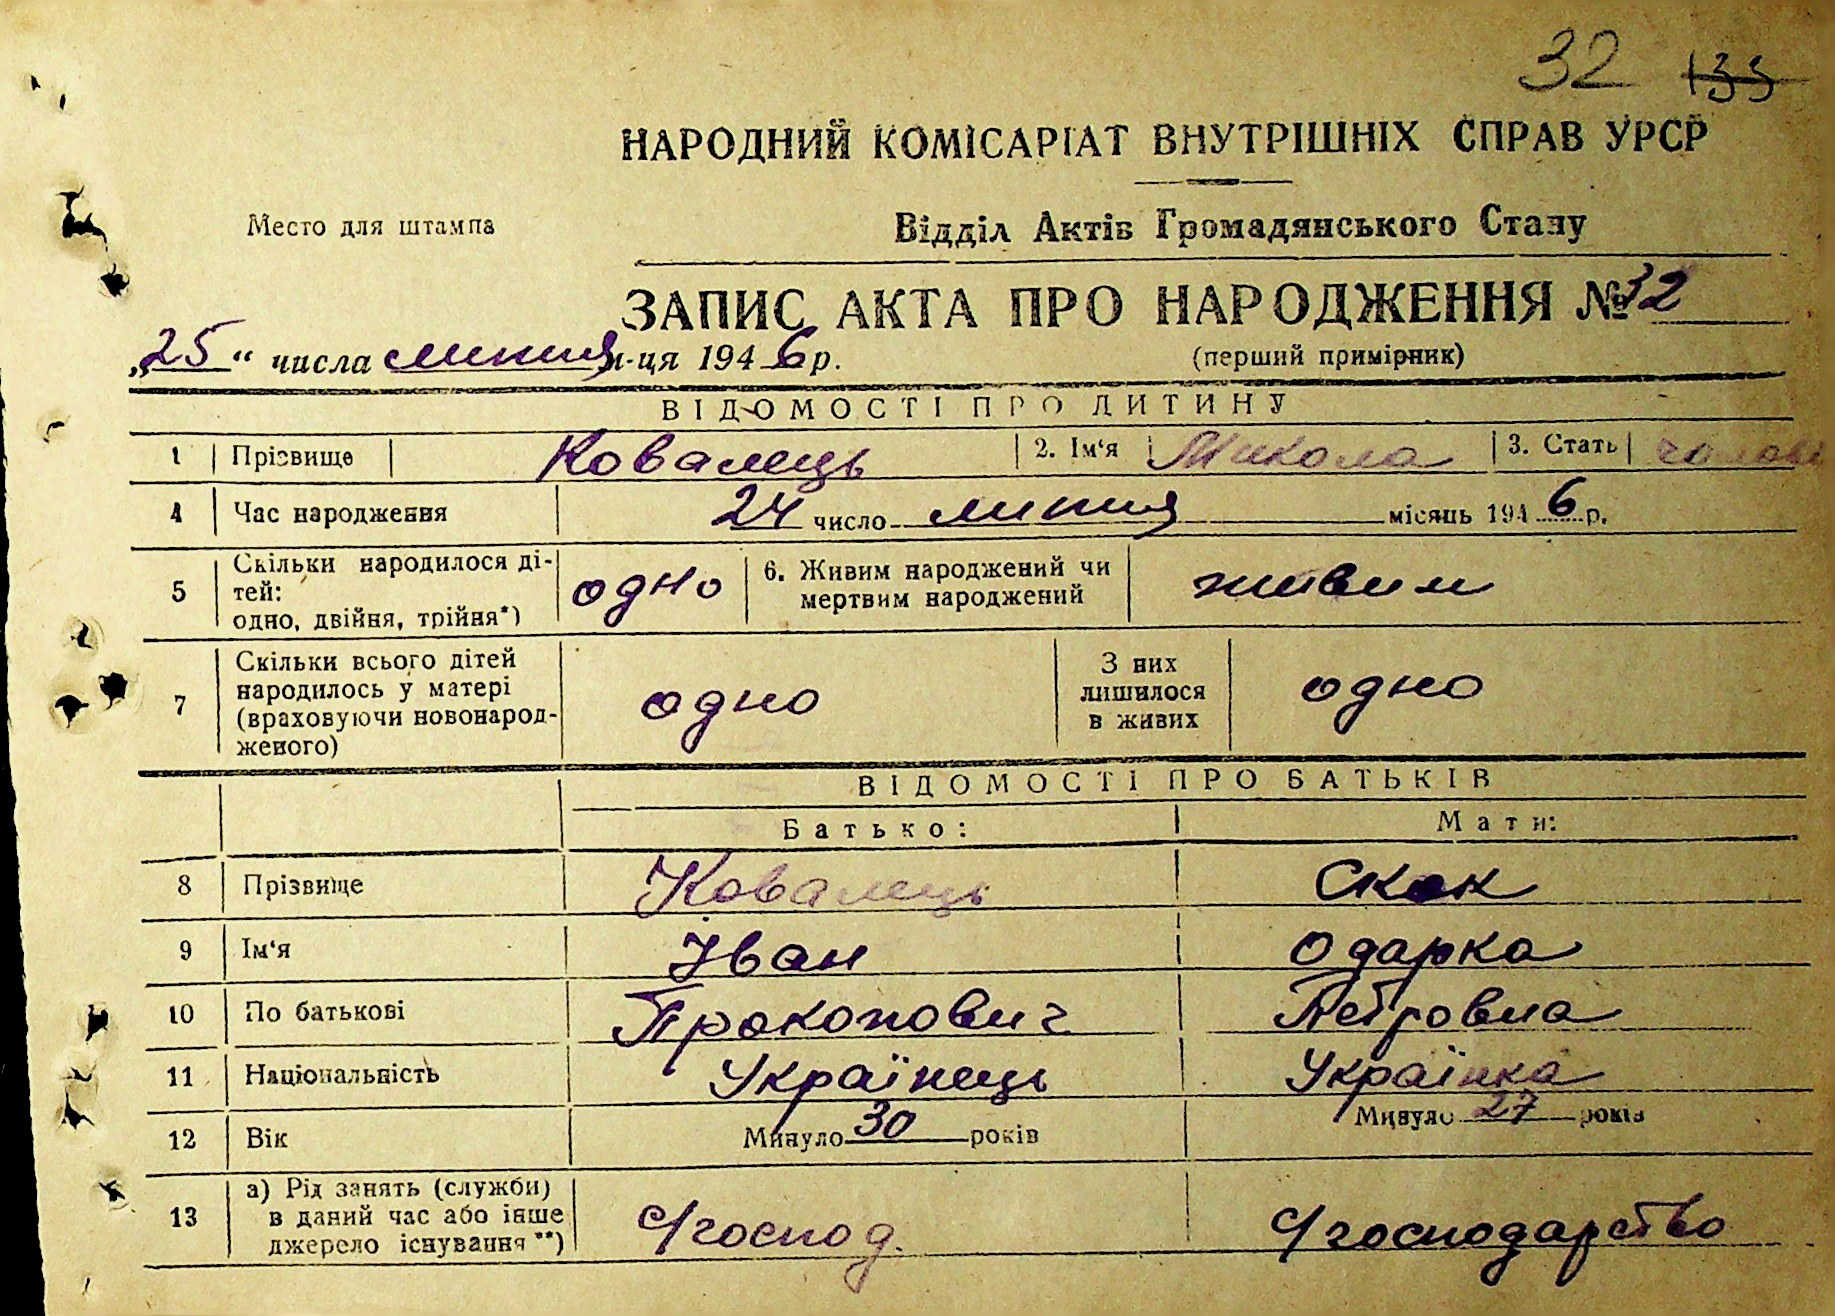 32 135
НАРОДНИЙ КОМІСАРІАТ ВНУТРІШНІХ СПРАВ УРСР
Место для штампа
Відділ Актів Громадянського Стану
ЗАПИС АКТА ПРО НАРОДЖЕННЯ № 32
„25“ числа липня м-ця 1946 р.
(перший примірник)
ВІДОМОСТІ ПРО ДИТИНУ
1 Прізвище Ковалець 2. Ім‘я Микола 3. Стать чолові
4 Час народження 24 число липня місяць 1946 р.
5 Скільки народилося ді-
тей:
одно, двійня, трійня*) одно
6. Живим народжений чи
мертвим народжений живим
7 Скільки всього дітей
народилось у матері
(враховуючи новонарод-
женого) одно
З них
лишилося
в живих одно
ВІДОМОСТІ ПРО БАТЬКІВ
Батько: Мати:
8 Прізвище Ковалець Скок
9 Ім‘я Іван Одарка
10 По батькові Прокопович Петровна
11 Національність Українець Українка
12 Вік Минуло 30 років Минуло 27 років
13 а) Рід занять (служби)
в даний час або інше
джерело існування**) с/господ. с/господарство